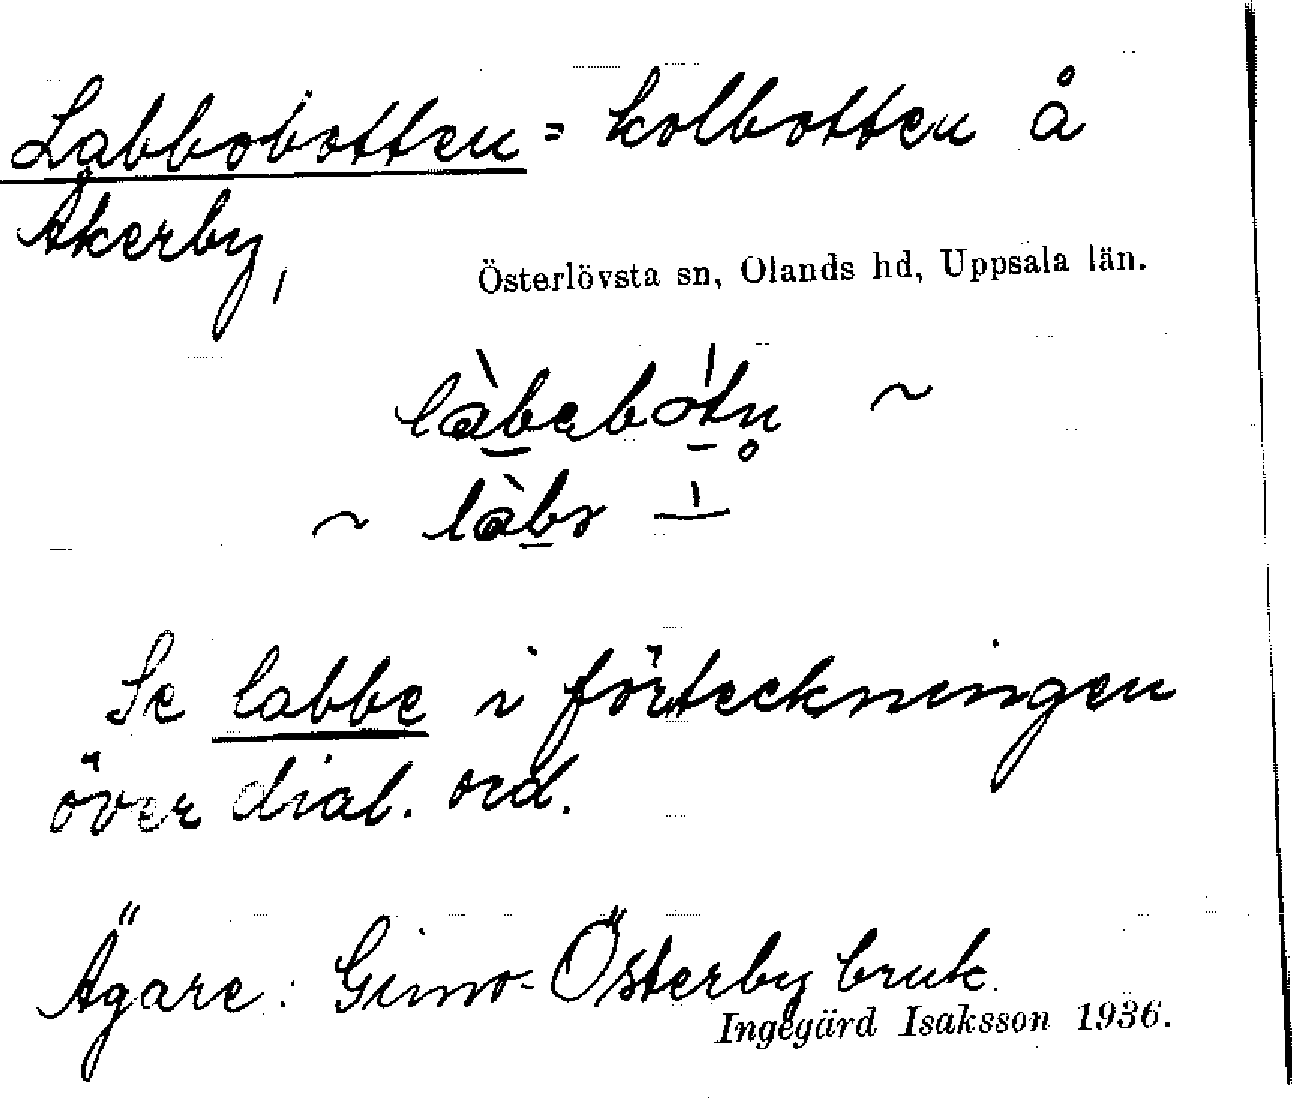 Labbobotten = kolbotten å
Åkerby,
Österlövsta sn, Olands hd, Uppsala län.
làbebótn̥ ~
~ làbo ⸺́
Se labbe i förteckningen
över dial. ord.
Ägare: Gimo-Österby bruk
Ingegärd Isaksson 1936.